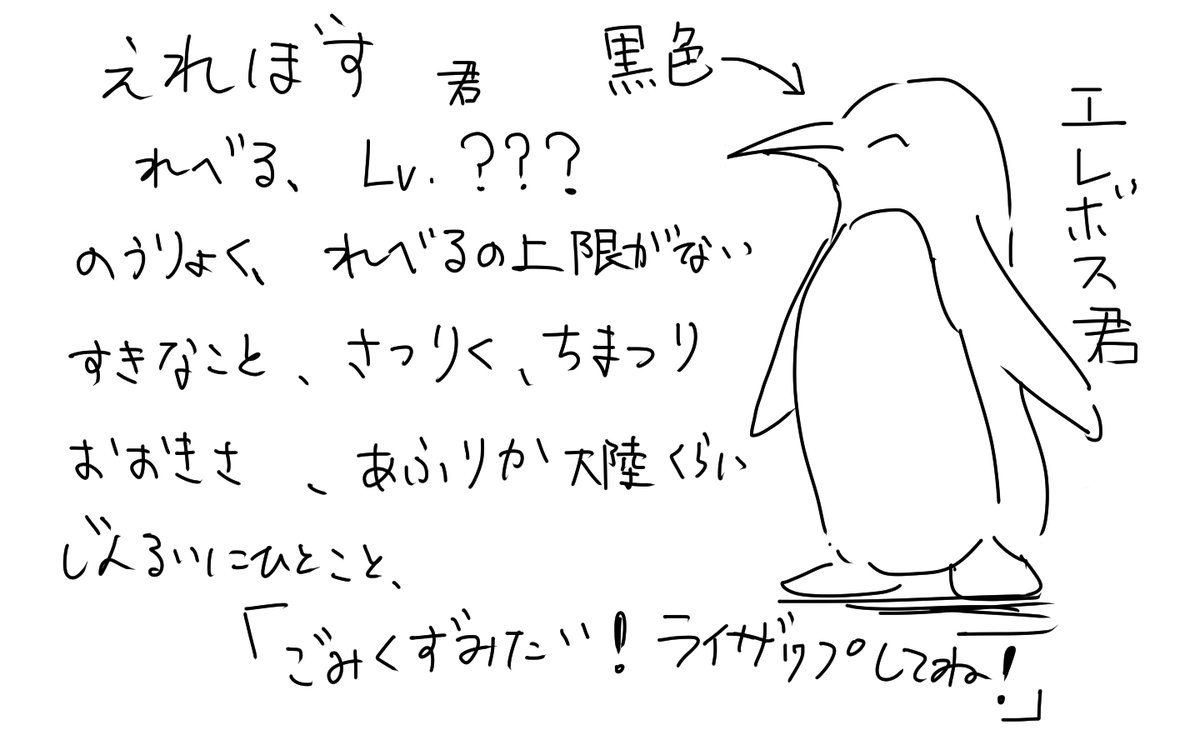 えれぼす 君
黒色
エレボス君
れべる、 Lv. ???
のうりょく、 れべるの上限がない
すきなこと、さつりく、ちまつり
おおきさ 、あふりか大陸くらい
じんるいにひとこと、
「ごみくずみたい!ライザップしてね!」